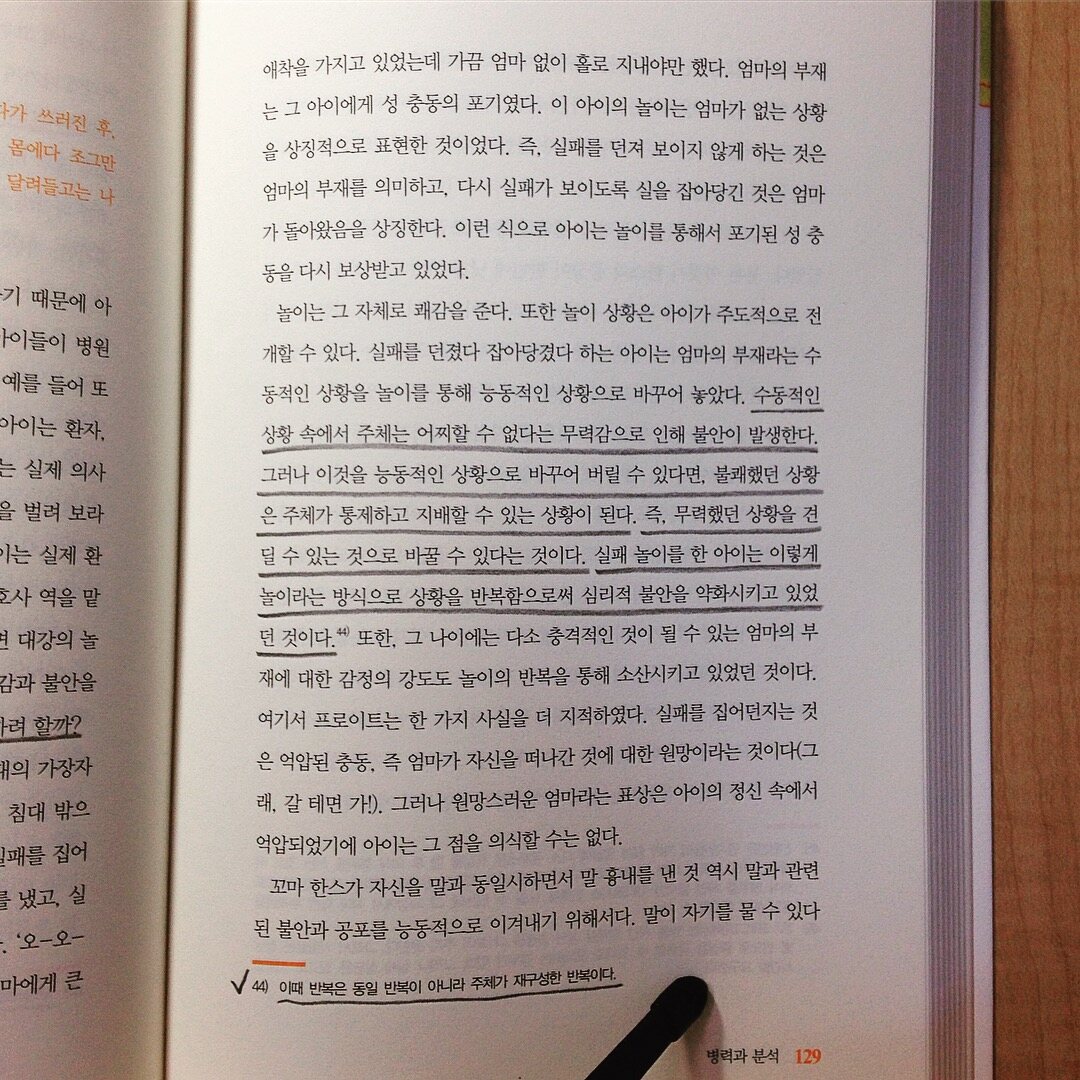 다가 쓰러진 후,
몸에다 조그만
달려들고는 나
기 때문에 아
아이들이 병원
예를 들어 또
아이는 환자,
는 실제 의사
을 벌려 보라
이는 실제 환
호사 역을 맡
면 대강의 놀
감과 불안을
하려 할까?
대의 가장자
침대 밖으
실패를 집어
를 냈고, 실
. ‘오-오-
마에게 큰
애착을 가지고 있었는데 가끔 엄마 없이 홀로 지내야만 했다. 엄마의 부재
는 그 아이에게 성 충동의 포기였다. 이 아이의 놀이는 엄마가 없는 상황
을 상징적으로 표현한 것이었다. 즉, 실패를 던져 보이지 않게 하는 것은
엄마의 부재를 의미하고, 다시 실패가 보이도록 실을 잡아당긴 것은 엄마
가 돌아왔음을 상징한다. 이런 식으로 아이는 놀이를 통해서 포기된 성 충
동을 다시 보상받고 있었다.
놀이는 그 자체로 쾌감을 준다. 또한 놀이 상황은 아이가 주도적으로 전
개할 수 있다. 실패를 던졌다 잡아당겼다 하는 아이는 엄마의 부재라는 수
동적인 상황을 놀이를 통해 능동적인 상황으로 바꾸어 놓았다. 수동적인
상황 속에서 주체는 어찌할 수 없다는 무력감으로 인해 불안이 발생한다.
그러나 이것을 능동적인 상황으로 바꾸어 버릴 수 있다면, 불쾌했던 상황
은 주체가 통제하고 지배할 수 있는 상황이 된다. 즉, 무력했던 상황을 견
딜 수 있는 것으로 바꿀 수 있다는 것이다. 실패 놀이를 한 아이는 이렇게
놀이라는 방식으로 상황을 반복함으로써 심리적 불안을 약화시키고 있었
던 것이다.44) 또한, 그 나이에는 다소 충격적인 것이 될 수 있는 엄마의 부
재에 대한 감정의 강도도 놀이의 반복을 통해 소산시키고 있었던 것이다.
여기서 프로이트는 한 가지 사실을 더 지적하였다. 실패를 집어던지는 것
은 억압된 충동, 즉 엄마가 자신을 떠나간 것에 대한 원망이라는 것이다(그
래, 갈 테면 가!). 그러나 원망스러운 엄마라는 표상은 아이의 정신 속에서
억압되었기에 아이는 그 점을 의식할 수는 없다.
꼬마 한스가 자신을 말과 동일시하면서 말 흉내를 낸 것 역시 말과 관련
된 불안과 공포를 능동적으로 이겨내기 위해서다. 말이 자기를 물 수 있다
44) 이때 반복은 동일 반복이 아니라 주체가 재구성한 반복이다.
병력과 분석 129